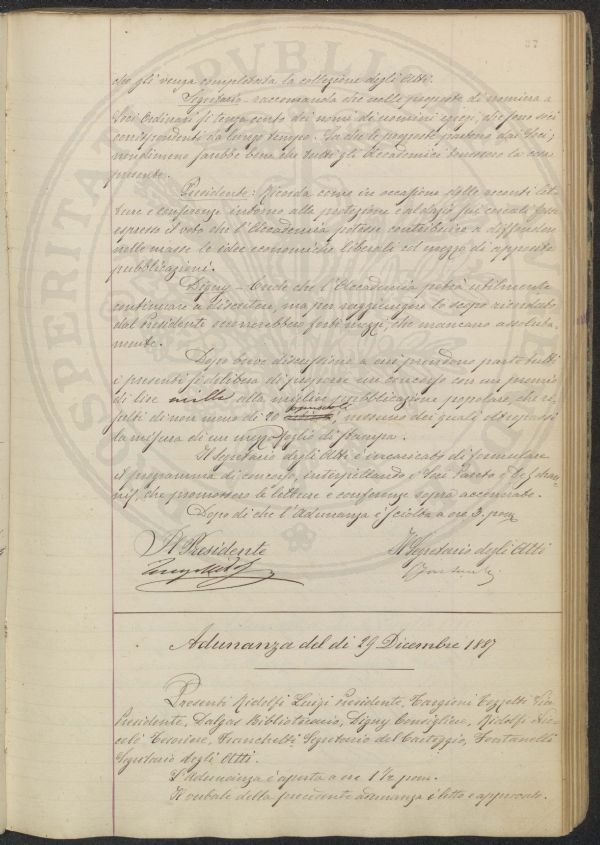 37
che gli venga completata la collezione degli Atti.
Segretario - raccomanda che nelle proposte di nomina a
Soci Ordinari si tenga conto dei nomi di uomini egregi, che sono soci
corrispondenti da lungo tempo. Sa che le proposte partono dai Soci,
nondimeno sarebbe bene che tutti gli Accademici tenessero la cosa
presente.
Presidente: Ricorda come in occasione delle recenti let-
ture e conferenze intorno alla protezione e al dazio sui cereali fosse
espresso il voto che l'Accademia potesse contribuire a diffondere
nelle masse le idee economiche liberali col mezzo di apposite
pubblicazioni.
Digny - Crede che l'Accademia potrà utilmente
continuare a discutere, ma per raggiungere lo scopo ricordato
dal Presidente occorrerebbero forti mezzi, che mancano assoluta-
mente.
Dopo breve discussione a cui prendono parte tutti
i presenti si delibera di proporre un concorso con un premio
di lire mille alla migliore pubblicazione popolare, che ri-
sulti di non meno di 20 , nessuno dei quali oltrepassi
la misura di un mezzo foglio di stampa.
Il Segretario degli Atti è incaricato di formulare
il programma di concorso, interpellando i Soci Pareto e De Johan-
nis, che promossero le letture e conferenze sopra accennate.
Dopo di che l'Adunanza è sciolta a ore 3. pom.
Il Presidente
Il Segretario degli Atti
Adunanza del dì 29 Dicembre 1887
Presenti Ridolfi Luigi Presidente, Targioni Tozzetti Vice
Presidente, Dalgas Bibliotecario, Digny Consigliere, Ridolfi Nic-
colò Tesoriere, Franchetti Segretario del Carteggio, Fontanelli
Segretario degli Atti.
L'adunanza è aperta a ore 1 ½ pom.
Il verbale della precedente adunanza è letto e approvato.